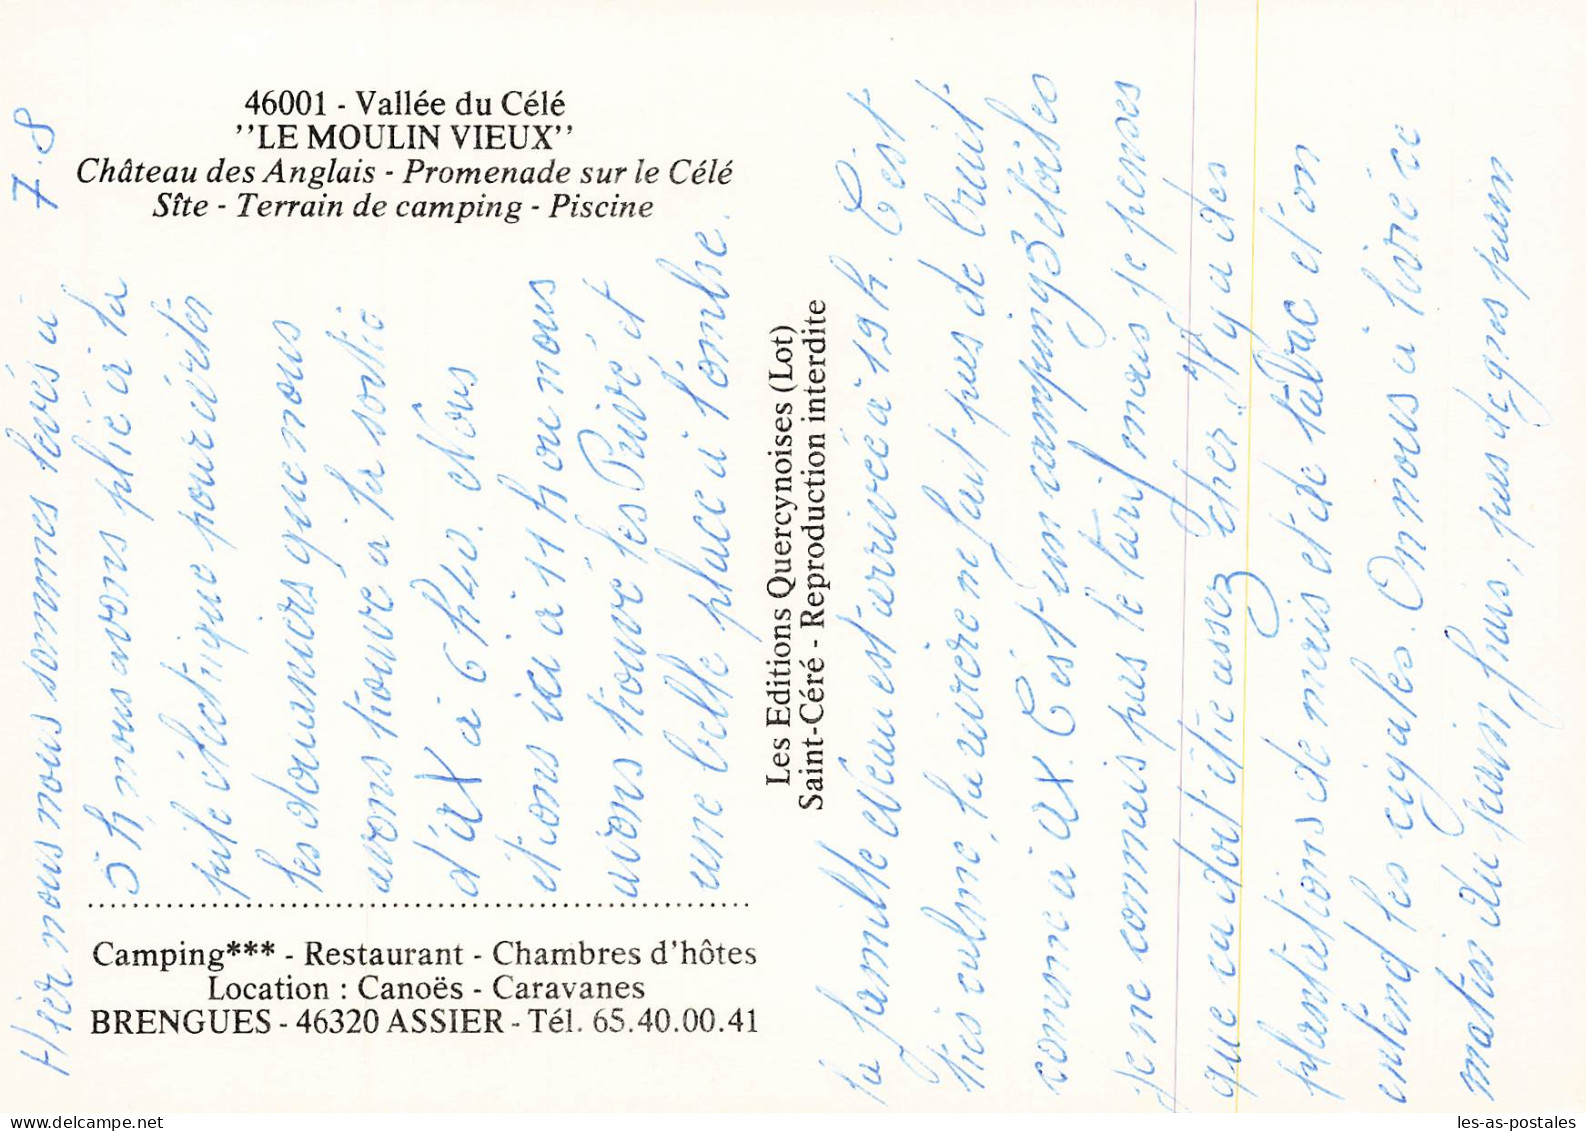 46001 - Vallée du Célé
''LE MOULIN VIEUX''
Château des Anglais - Promenade sur le Célé
Sîte - Terrain de camping - Piscine
Camping*** - Restaurant - Chambres d'hôtes
Location : Canoës - Caravanes
BRENGUES - 46320 ASSIER - Tél. 65.40.00.41
Les Editions Quercynoises (Lot)
Saint-Céré - Reproduction interdite
7.8
Hier nous nous sommes levés à
5h, nous avons plié à la
pile électrique pour éviter
les douaniers que nous
avons trouvé à la sortie
d'ax à 6h40. Nous
étions ici à 11h ou nous
avons trouvé les Privé et
une belle place à l'ombre.
la famille est arrivée à 19h. C'est
très calme, la rivière ne fait pas de bruit
comme à ax. C'est un camping 3 étoiles
je ne connais pas le tarif mais je penses
que ca doit être assez cher. Il y a des
plantations de maïs et de tabac et on
entend les cigales. On nous a livré ce
matin du pain frais, pas de gros pain